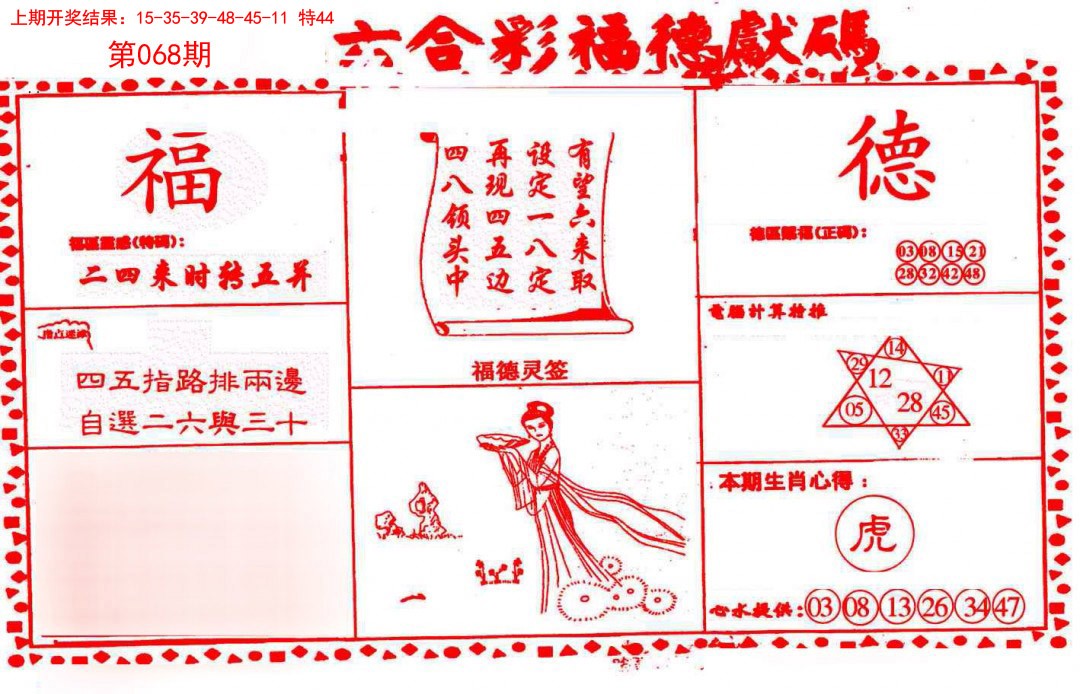 上期开奖结果：15-35-39-48-45-11 特44
第068期
六合彩福德獻碼
福
福區靈感(特碼)：
二四来时转五并
四五指路排兩邊
自選二六與三十
有望六来取
设定一八定
再现四五边
四八领头中
福德灵签
一
德
德區賜福(正碼)：
03 08 15 21
28 32 42 48
電腦計算榜推
14
29 12 11
05 28 45
33
本期生肖心得：
虎
心水提供：03 08 13 26 34 47